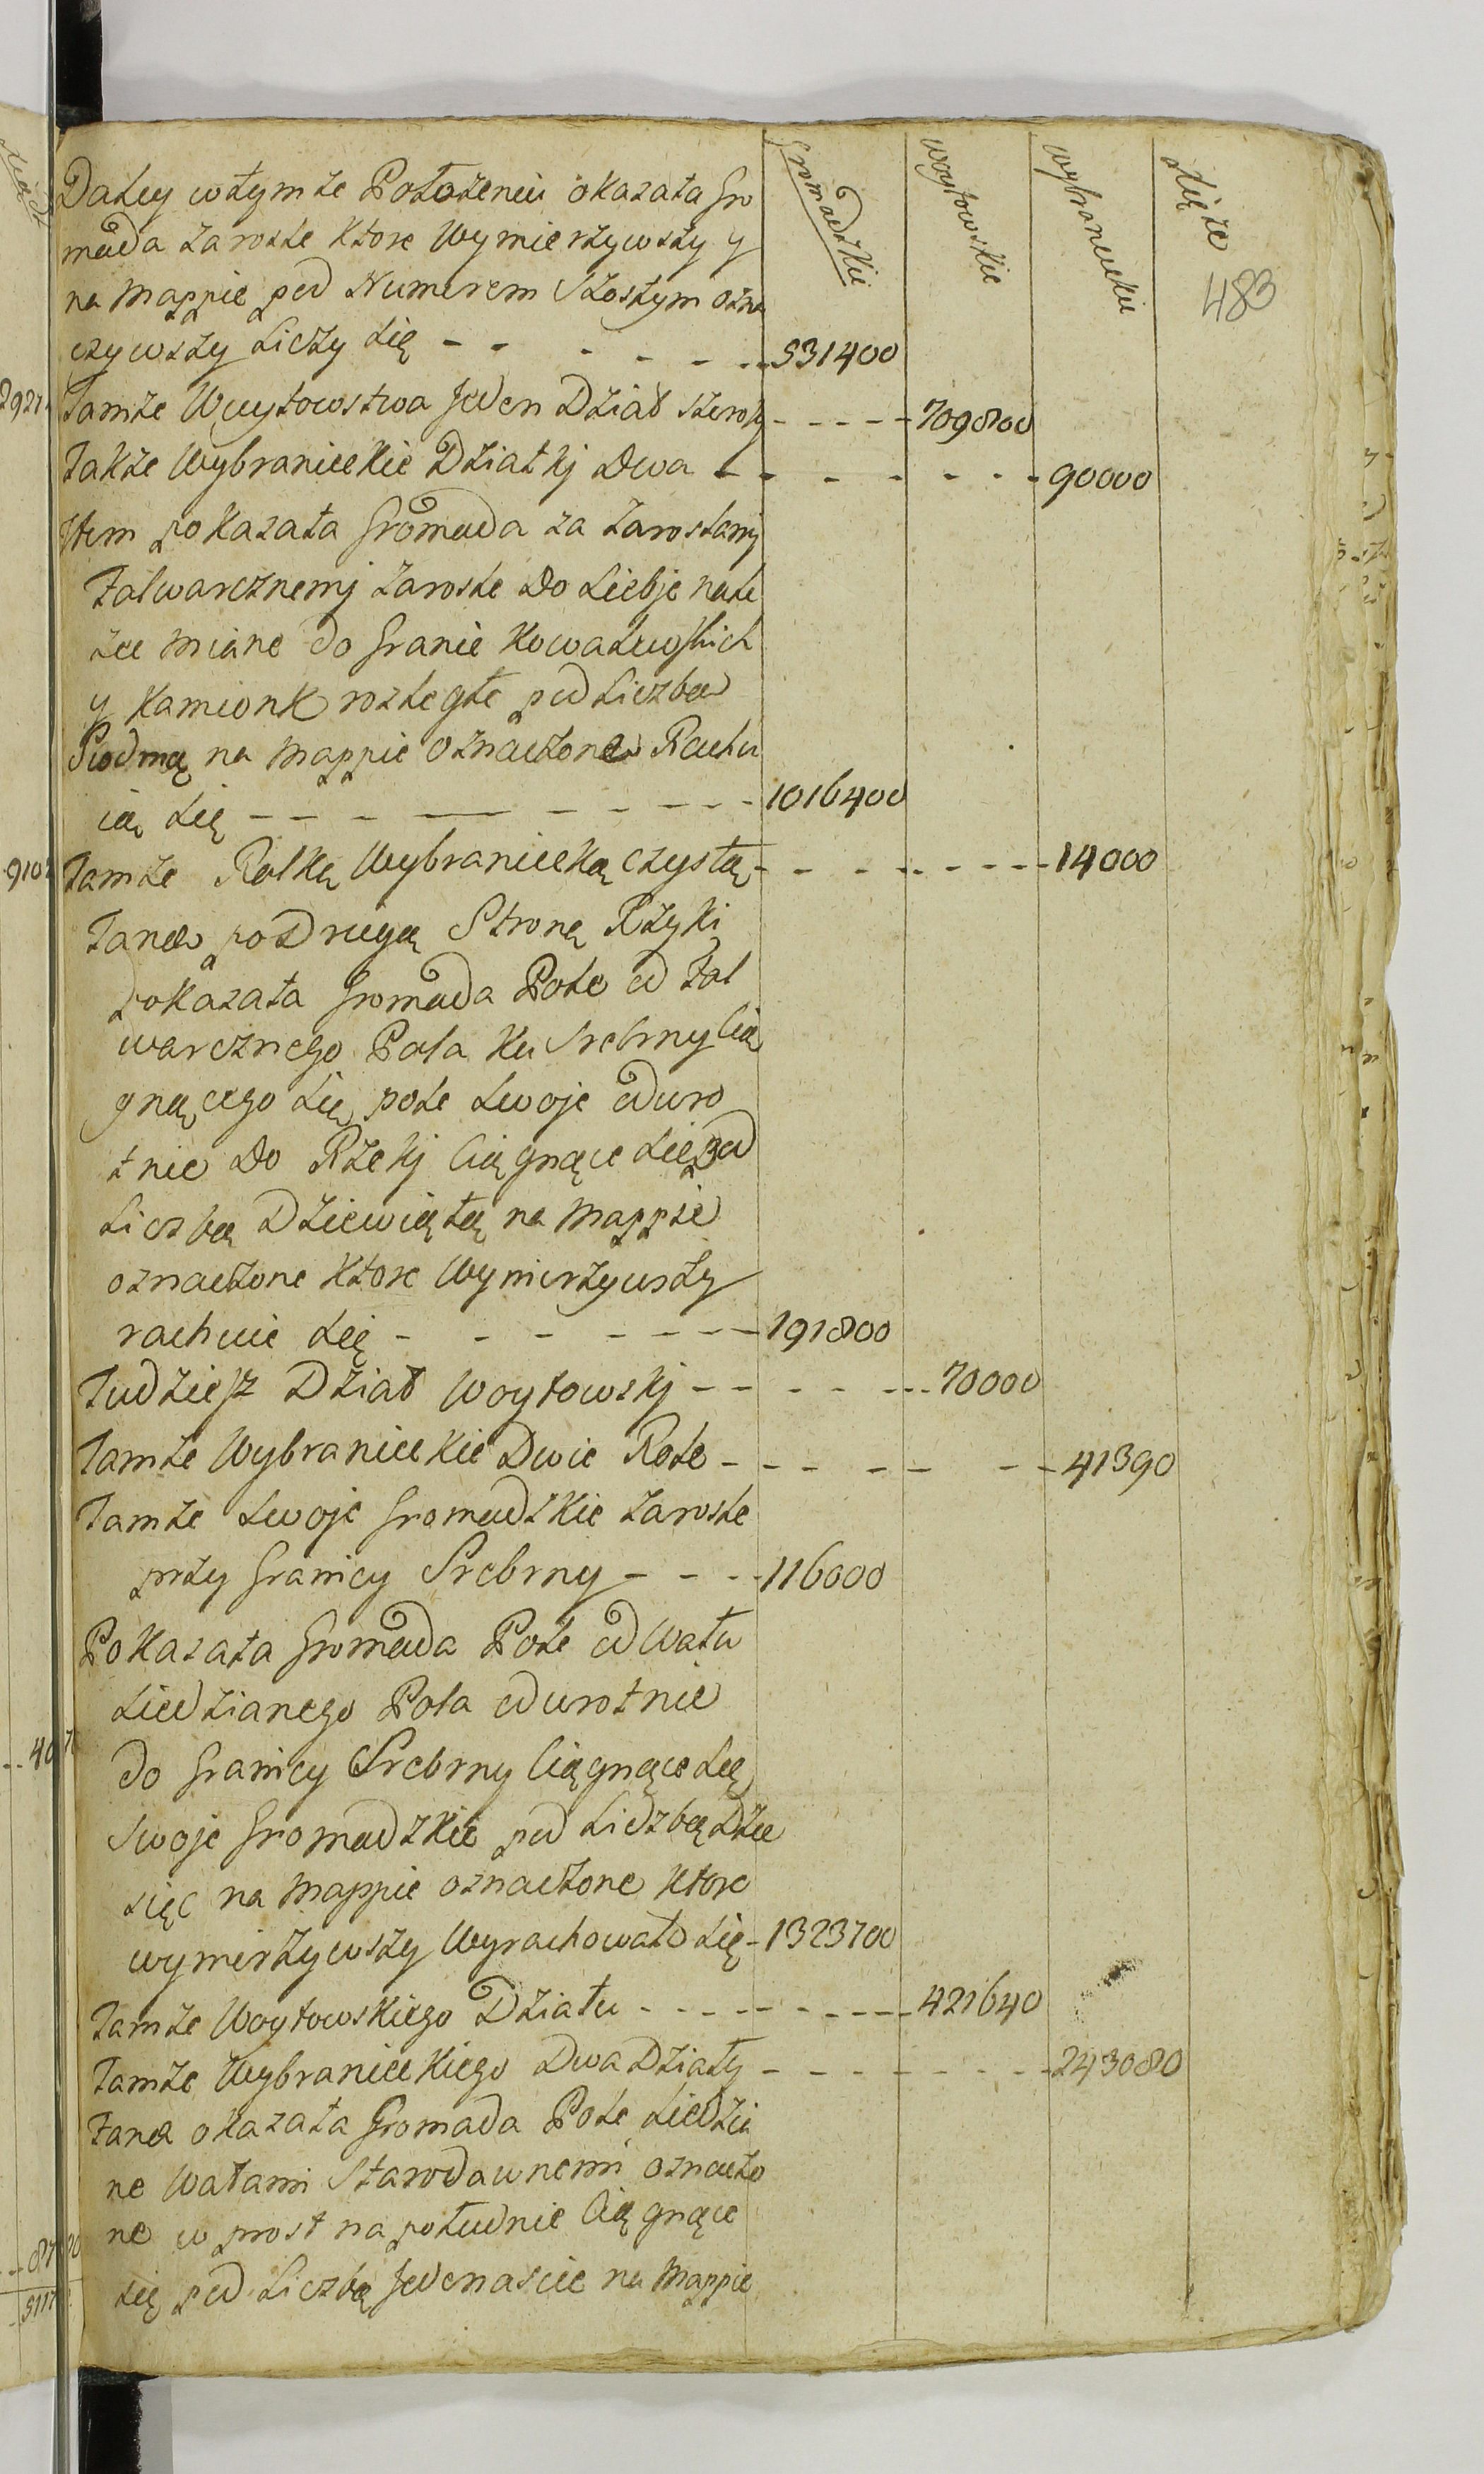 Gromadzkie woytowskie wybranieckie xięże
483
Daley w tym że Położeniu okazała Gro
mada zarosle ktore Wymierzywszy y
na Mappie pod Numerem Szostym ozna
czywszy Liczy się - - - - - 531400
Tamże Woytowstwa Jeden Dział szeroky - - - - - 709800
Także Wybranieckie Działkj Dwa - - - - - 90000
Item pokazała Gromada za zaroslamj
Falwarcznemj zarosle do siebje nale
żce miane do Granic Kowalewskich
y Kamionk rozległe pod Liczbą
Siodmą na Mappie oznaczone Rachu
ią się - - - - - 1016400
Tamże Rolką Wybranieeką czystą - - - - - 14000
Tandem po Drugą Stroną Rzyki
pokazała Gromada Pole od Fal
warcznego Pola ku Srebrny Cią
gnącego się, pole swoje odwro
tnie do Rzekj Ciągnące się pod
Liczbą Dziewiątą na Mappie
oznaczone ktore Wymierzywszy
rachuie się - - - - - 191800
Tudziesz Dział Woytowskj - - - - - 70000
Tamże Wybranieckie Dwie Role - - - - - 41390
Tamże swoje Gromadzkie zarosle
przy Granicy Srebrny - - - - 116000
Pokazała Gromada Pole od Wału
siedzianego Pola odwrotnie
do Granicy Srebrny Ciągnące się
swoje Gromadzkie pod Lidzbą Dzie
sięc na Mappie oznaczone ktore
wymierzywszy Wyrachowało się - 1323700
Tamże Woytowskiego Działu - - - - - 421640
Tamże Wybranieckiego Dwa Działy - - - - - 243080
Tandem okazała Gromada Pole siedzia
ne Wałami Starodawnemi oznaczo
ne w prost na południe Ciągnące
się pod Liczbą Jedenascie na Mappie